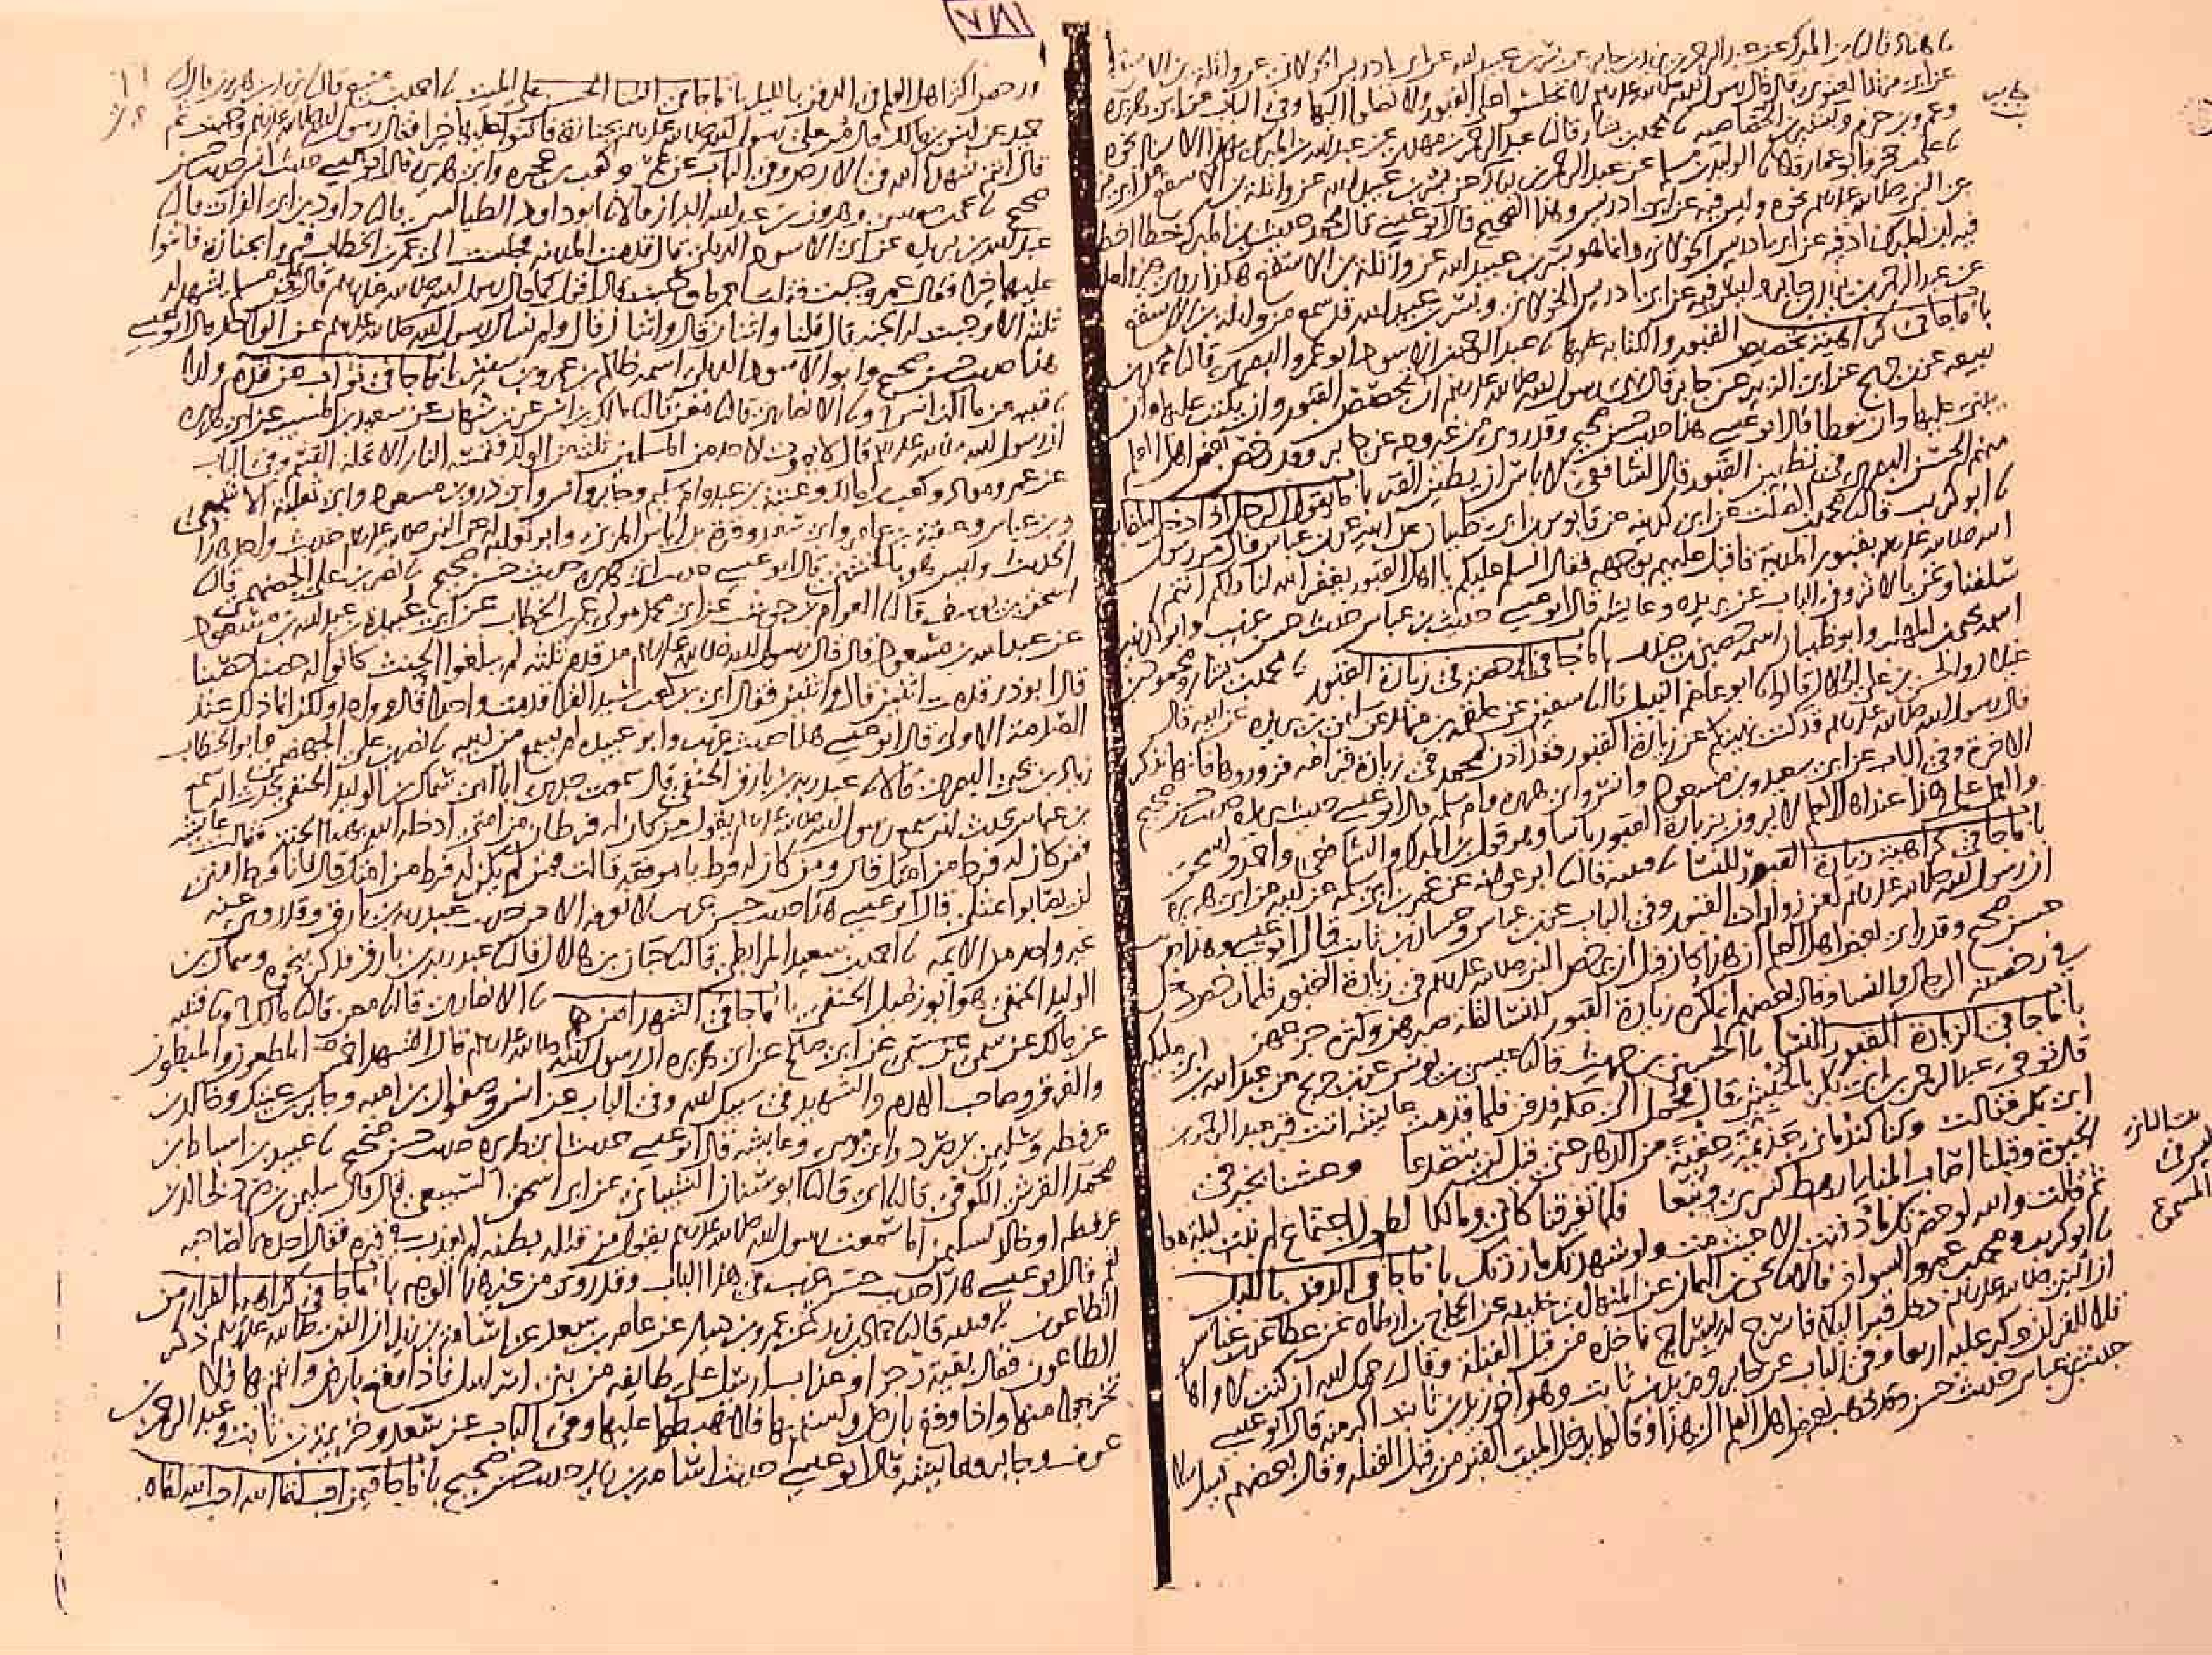 نا هناد قال نا بن المبرك عن عبد الرحمن بن يزيد بن جابر عن بسر بن عبيد الله عن ابي ادريس الخولاني عن واثلة بن الاسقع
عن ابي مرثد الغنوي قال قال رسول الله صلى الله عليه وسلم لا تجلسوا على القبور ولا تصلوا اليها وفي الباب عن ابي هريرة
وعمرو بن حزم وبشير بن الخصاصية نا محمد بن بشار قال نا عبد الرحمن بن مهدي عن عبد الله بن المبرك بهذا الاسناد نحوه
نا علي بن حجر وابو عمار قالا نا الوليد بن مسلم عن عبد الرحمن بن يزيد بن جابر عن بسر بن عبيد الله عن واثلة بن الاسقع عن ابي مرثد
عن النبي صلى الله عليه وسلم نحوه وليس فيه عن ابي ادريس وهذا الصحيح قال ابو عيسى قال محمد حديث بن المبرك خطا اخطا
فيه ابن المبرك زاد فيه عن ابي ادريس الخولاني وانما هو بسر بن عبيد الله عن واثلة بن الاسقع هكذا روى غير واحد
عن عبد الرحمن بن يزيد بن جابر وليس فيه عن ابي ادريس الخولاني وبسر بن عبيد الله قد سمع من واثلة بن الاسقع
باب ما جا في كراهية تجصيص القبور والكتابة عليها نا عبد الرحمن بن الاسود ابو عمرو البصري قال نا محمد بن
ربيعة عن بن جريج عن ابي الزبير عن جابر قال نهى رسول الله صلى الله عليه وسلم ان تجصص القبور وان يكتب عليها وان
يبنى عليها وان توطا قال ابو عيسى هذا حديث حسن صحيح وقد روي من غير وجه عن جابر وقد رخص بعض اهل العلم
منهم الحسن البصري في تطيين القبور قال الشافعي لا باس ان يطين القبر باب ما يقول الرجل اذا دخل المقابر
نا ابو كريب قال نا محمد بن الصلت عن ابي كدينة عن قابوس بن ابي ظبيان عن ابيه عن بن عباس قال مر رسول
الله صلى الله عليه وسلم بقبور المدينة فاقبل عليهم بوجهه فقال السلم عليكم يا اهل القبور يغفر الله لنا ولكم انتم
سلفنا ونحن بالاثر وفي الباب عن بريدة وعايشة قال ابو عيسى حديث بن عباس حديث حسن غريب وابو كدينة
اسمه يحيى بن المهلب وابو ظبيان اسمه حصين بن جندب باب ما جا في الرخصة في زيارة القبور نا محمد بن بشار ومحمود بن
غيلان والحسن بن علي الخلال قالوا نا ابو عاصم النبيل قال نا سفين عن علقمة بن مرثد عن سليمن بن بريدة عن ابيه قال
قال رسول الله صلى الله عليه وسلم قد كنت نهيتكم عن زيارة القبور فقد اذن لمحمد في زيارة قبر امه فزوروها فانها تذكر
الاخرة وفي الباب عن ابي سعيد وبن مسعود وانس وابي هريرة وام سلمة قال ابو عيسى حديث بريدة حديث حسن صحيح
والعمل على هذا عند اهل العلم لا يرون بزيارة القبور باسا وهو قول بن المبرك والشافعي واحمد واسحق
باب ما جا في كراهية زيارة القبور للنسا نا قتيبة قال نا ابو عوانة عن عمر بن ابي سلمة عن ابيه عن ابي هريرة
ان رسول الله صلى الله عليه وسلم لعن زوارات القبور وفي الباب عن بن عباس وحسان بن ثابت قال ابو عيسى وهذا حديث
حسن صحيح وقد راى بعض اهل العلم ان هذا كان قبل ان يرخص النبي صلى الله عليه وسلم في زيارة القبور فلما رخص دخل
في رخصته الرجال والنسا وقال بعضهم انما كره زيارة القبور للنسا لقلة صبرهن وكثرة جزعهن
باب ما جا في الزيارة القبور للنسا نا الحسين بن حريث قال نا عيسى بن يونس عن بن جريج عن عبد الله بن ابي مليكة
قال توفي عبد الرحمن بن ابي بكر بالحبشي قال فحمل الى مكة فدفن فلما قدمت عايشة اتت قبر عبد الرحمن بن
ابي بكر فقالت وكنا كندماني جذيمة حقبة من الدهر حتى قيل لن يتصدعا وعشنا بخير في
الحيوة وقبلنا اصاب المنايا رهط كسرى وتبعا فلما تفرقنا كاني ومالكا لطول اجتماع لم نبت ليلة معا
ثم قالت والله لو حضرتك ما دفنت الا حيث مت ولو شهدتك ما زرتك باب ما جا في الدفن بالليل
نا ابو كريب ومحمد بن عمرو السواق قالا نا يحيى بن اليمان عن المنهال بن خليفة عن الحجاج بن ارطاة عن عطا عن بن عباس
ان النبي صلى الله عليه وسلم دخل قبرا ليلا فاسرج له بسراج فاخذه من قبل القبلة وقال رحمك الله ان كنت لاواها
تلا للقران وكبر عليه اربعا وفي الباب عن جابر ويزيد بن ثابت وهو اخو زيد بن ثابت اكبر منه قال ابو عيسى
حديث بن عباس حديث حسن وقد ذهب بعض اهل العلم الى هذا وقالوا يدخل الميت القبر من قبل القبلة وقال بعضهم يسل سلا
ورخص اكثر اهل العلم في الدفن بالليل باب ما جا في الثنا الحسن على الميت نا احمد بن منيع قال نا يزيد بن هارون قال نا
حميد عن انس بن مالك قال مر على رسول الله صلى الله عليه وسلم بجنازة فاثنوا عليها خيرا فقال رسول الله صلى الله عليه وسلم وجبت ثم
قال انتم شهدا الله في الارض وفي الباب عن عمر وكعب بن عجرة وابي هريرة قال ابو عيسى حديث انس حديث حسن
صحيح نا يحيى بن موسى وهرون بن عبد الله البزاز قالا نا ابو داود الطيالسي قال نا داود بن ابي الفرات قال نا
عبد الله بن بريدة عن ابي الاسود الديلي قال قدمت المدينة فجلست الى عمر بن الخطاب فمر بجنازة فاثنوا
عليها خيرا فقال عمر وجبت فقلت لعمر ما وجبت قال اقول كما قال رسول الله صلى الله عليه وسلم قال ما من مسلم يشهد له
ثلثة الا وجبت له الجنة قال قلنا واثنان قال واثنان قال ولم نسال رسول الله صلى الله عليه وسلم عن الواحد قال ابو عيسى
هذا حديث حسن صحيح وابو الاسود الديلي اسمه ظالم بن عمرو بن سفين باب ما جا في ثواب من قدم ولدا
نا قتيبة عن مالك بن انس ح ونا الانصاري قال نا معن قال نا مالك بن انس عن بن شهاب عن سعيد بن المسيب عن ابي هريرة
ان رسول الله صلى الله عليه وسلم قال لا يموت لاحد من المسلمين ثلثة من الولد فتمسه النار الا تحلة القسم وفي الباب
عن عمر ومعاذ وكعب بن مالك وعتبة بن عبد وام سليم وجابر وانس وابي ذر وبن مسعود وابي ثعلبة الاشجعي
وبن عباس وعقبة بن عامر وابي سعيد وقرة بن اياس المزني وابو ثعلبة له عن النبي صلى الله عليه وسلم حديث واحد هذا
الحديث وليس هو بالخشني قال ابو عيسى حديث ابي هريرة حديث حسن صحيح نا نصر بن علي الجهضمي قال نا
اسحق بن يوسف قال نا العوام بن حوشب عن ابي محمد مولى عمر بن الخطاب عن ابي عبيدة بن عبد الله بن مسعود
عن عبد الله بن مسعود قال قال رسول الله صلى الله عليه وسلم من قدم ثلثة لم يبلغوا الحنث كانوا له حصنا حصينا
قال ابو ذر قدمت اثنين قال واثنين فقال ابي بن كعب سيد القرا قدمت واحدا قال وواحدا ولكن انما ذلك عند
الصدمة الاولى قال ابو عيسى هذا حديث غريب وابو عبيدة لم يسمع من ابيه نا نصر بن علي الجهضمي وابو الخطاب
زياد بن يحيى البصري قالا نا عبد ربه بن بارق الحنفي قال سمعت جدي ابا امي سماك بن الوليد الحنفي يحدث انه سمع
بن عباس يحدث انه سمع رسول الله صلى الله عليه وسلم يقول من كان له فرطان من امتي ادخله الله بهما الجنة فقالت عايشة
فمن كان له فرط من امتك قال ومن كان له فرط يا موفقة قالت فمن لم يكن له فرط من امتك قال فانا فرط امتي
لن يصابوا بمثلي قال ابو عيسى هذا حديث حسن غريب لا نعرفه الا من حديث عبد ربه بن بارق وقد روى عنه
غير واحد من الايمة نا احمد بن سعيد المرابطي قال نا حبان بن هلال قال نا عبد ربه بن بارق فذكر نحوه وسماك بن
الوليد الحنفي هو ابو زميل الحنفي باب ما جا في الشهدا من هم نا الانصاري قال نا معن قال نا مالك ح ونا قتيبة
عن مالك عن سمي عن ابي صالح عن ابي هريرة ان رسول الله صلى الله عليه وسلم قال الشهدا خمسة المطعون والمبطون
والغرق وصاحب الهدم والشهيد في سبيل الله وفي الباب عن انس وصفوان بن امية وجابر بن عتيك وخالد بن
عرفطة وسليمن بن صرد وابي موسى وعايشة قال ابو عيسى حديث ابي هريرة حديث حسن صحيح نا عبيد بن اسباط بن
محمد القرشي الكوفي قال نا ابي قال نا ابو سنان الشيباني عن ابي اسحق السبيعي قال قال سليمن بن صرد لخالد بن
عرفطة او خالد لسليمن اما سمعت رسول الله صلى الله عليه وسلم يقول من قتله بطنه لم يعذب في قبره فقال احدهما لصاحبه
نعم قال ابو عيسى هذا حديث حسن غريب في هذا الباب وقد روي من غير هذا الوجه باب ما جا في كراهية الفرار من
الطاعون نا قتيبة قال نا حماد بن زيد عن عمرو بن دينار عن عامر بن سعد عن اسامة بن زيد ان النبي صلى الله عليه وسلم ذكر
الطاعون فقال بقية رجز او عذاب ارسل على طايفة من بني اسرايل فاذا وقع بارض وانتم بها فلا
تخرجوا منها واذا وقع بارض ولستم بها فلا تهبطوا عليها وفي الباب عن سعد وخزيمة بن ثابت وعبد الرحمن بن
عوف وجابر وعايشة قال ابو عيسى حديث اسامة بن زيد حديث حسن صحيح باب ما جا فيمن احب لقا الله احب الله لقاه